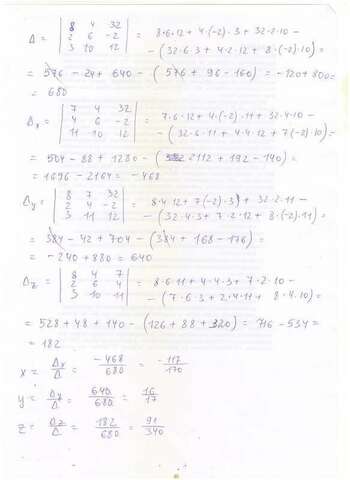 Δ = | 8 4 32 | = 8·6·12 + 4·(-2)·3 + 32·2·10 -
| 2 6 -2 |
| 3 10 12 | - (32·6·3 + 4·2·12 + 8·(-2)·10) =
= 576 - 24 + 640 - (576 + 96 - 160) = -120 + 800 =
= 680
Δx = | 7 4 32 | = 7·6·12 + 4·(-2)·11 + 32·4·10 -
| 4 6 -2 |
| 11 10 12 | - (32·6·11 + 4·4·12 + 7(-2)·10) =
= 504 - 88 + 1280 - (2112 + 192 - 140) =
= 1696 - 2164 = -468
Δy = | 8 7 32 | = 8·4·12 + 7(-2)·3 + 32·2·11 -
| 2 4 -2 |
| 3 11 12 | - (32·4·3 + 7·2·12 + 8·(-2)·11) =
= 384 - 42 + 704 - (384 + 168 - 176) =
= -240 + 880 = 640
Δz = | 8 4 7 | = 8·6·11 + 4·4·3 + 7·2·10 -
| 2 6 4 |
| 3 10 11 | - (7·6·3 + 2·4·11 + 8·4·10) =
= 528 + 48 + 140 - (126 + 88 + 320) = 716 - 534 =
= 182
x = Δx/Δ = -468/680 = -117/170
y = Δy/Δ = 640/680 = 16/17
z = Δz/Δ = 182/680 = 91/340